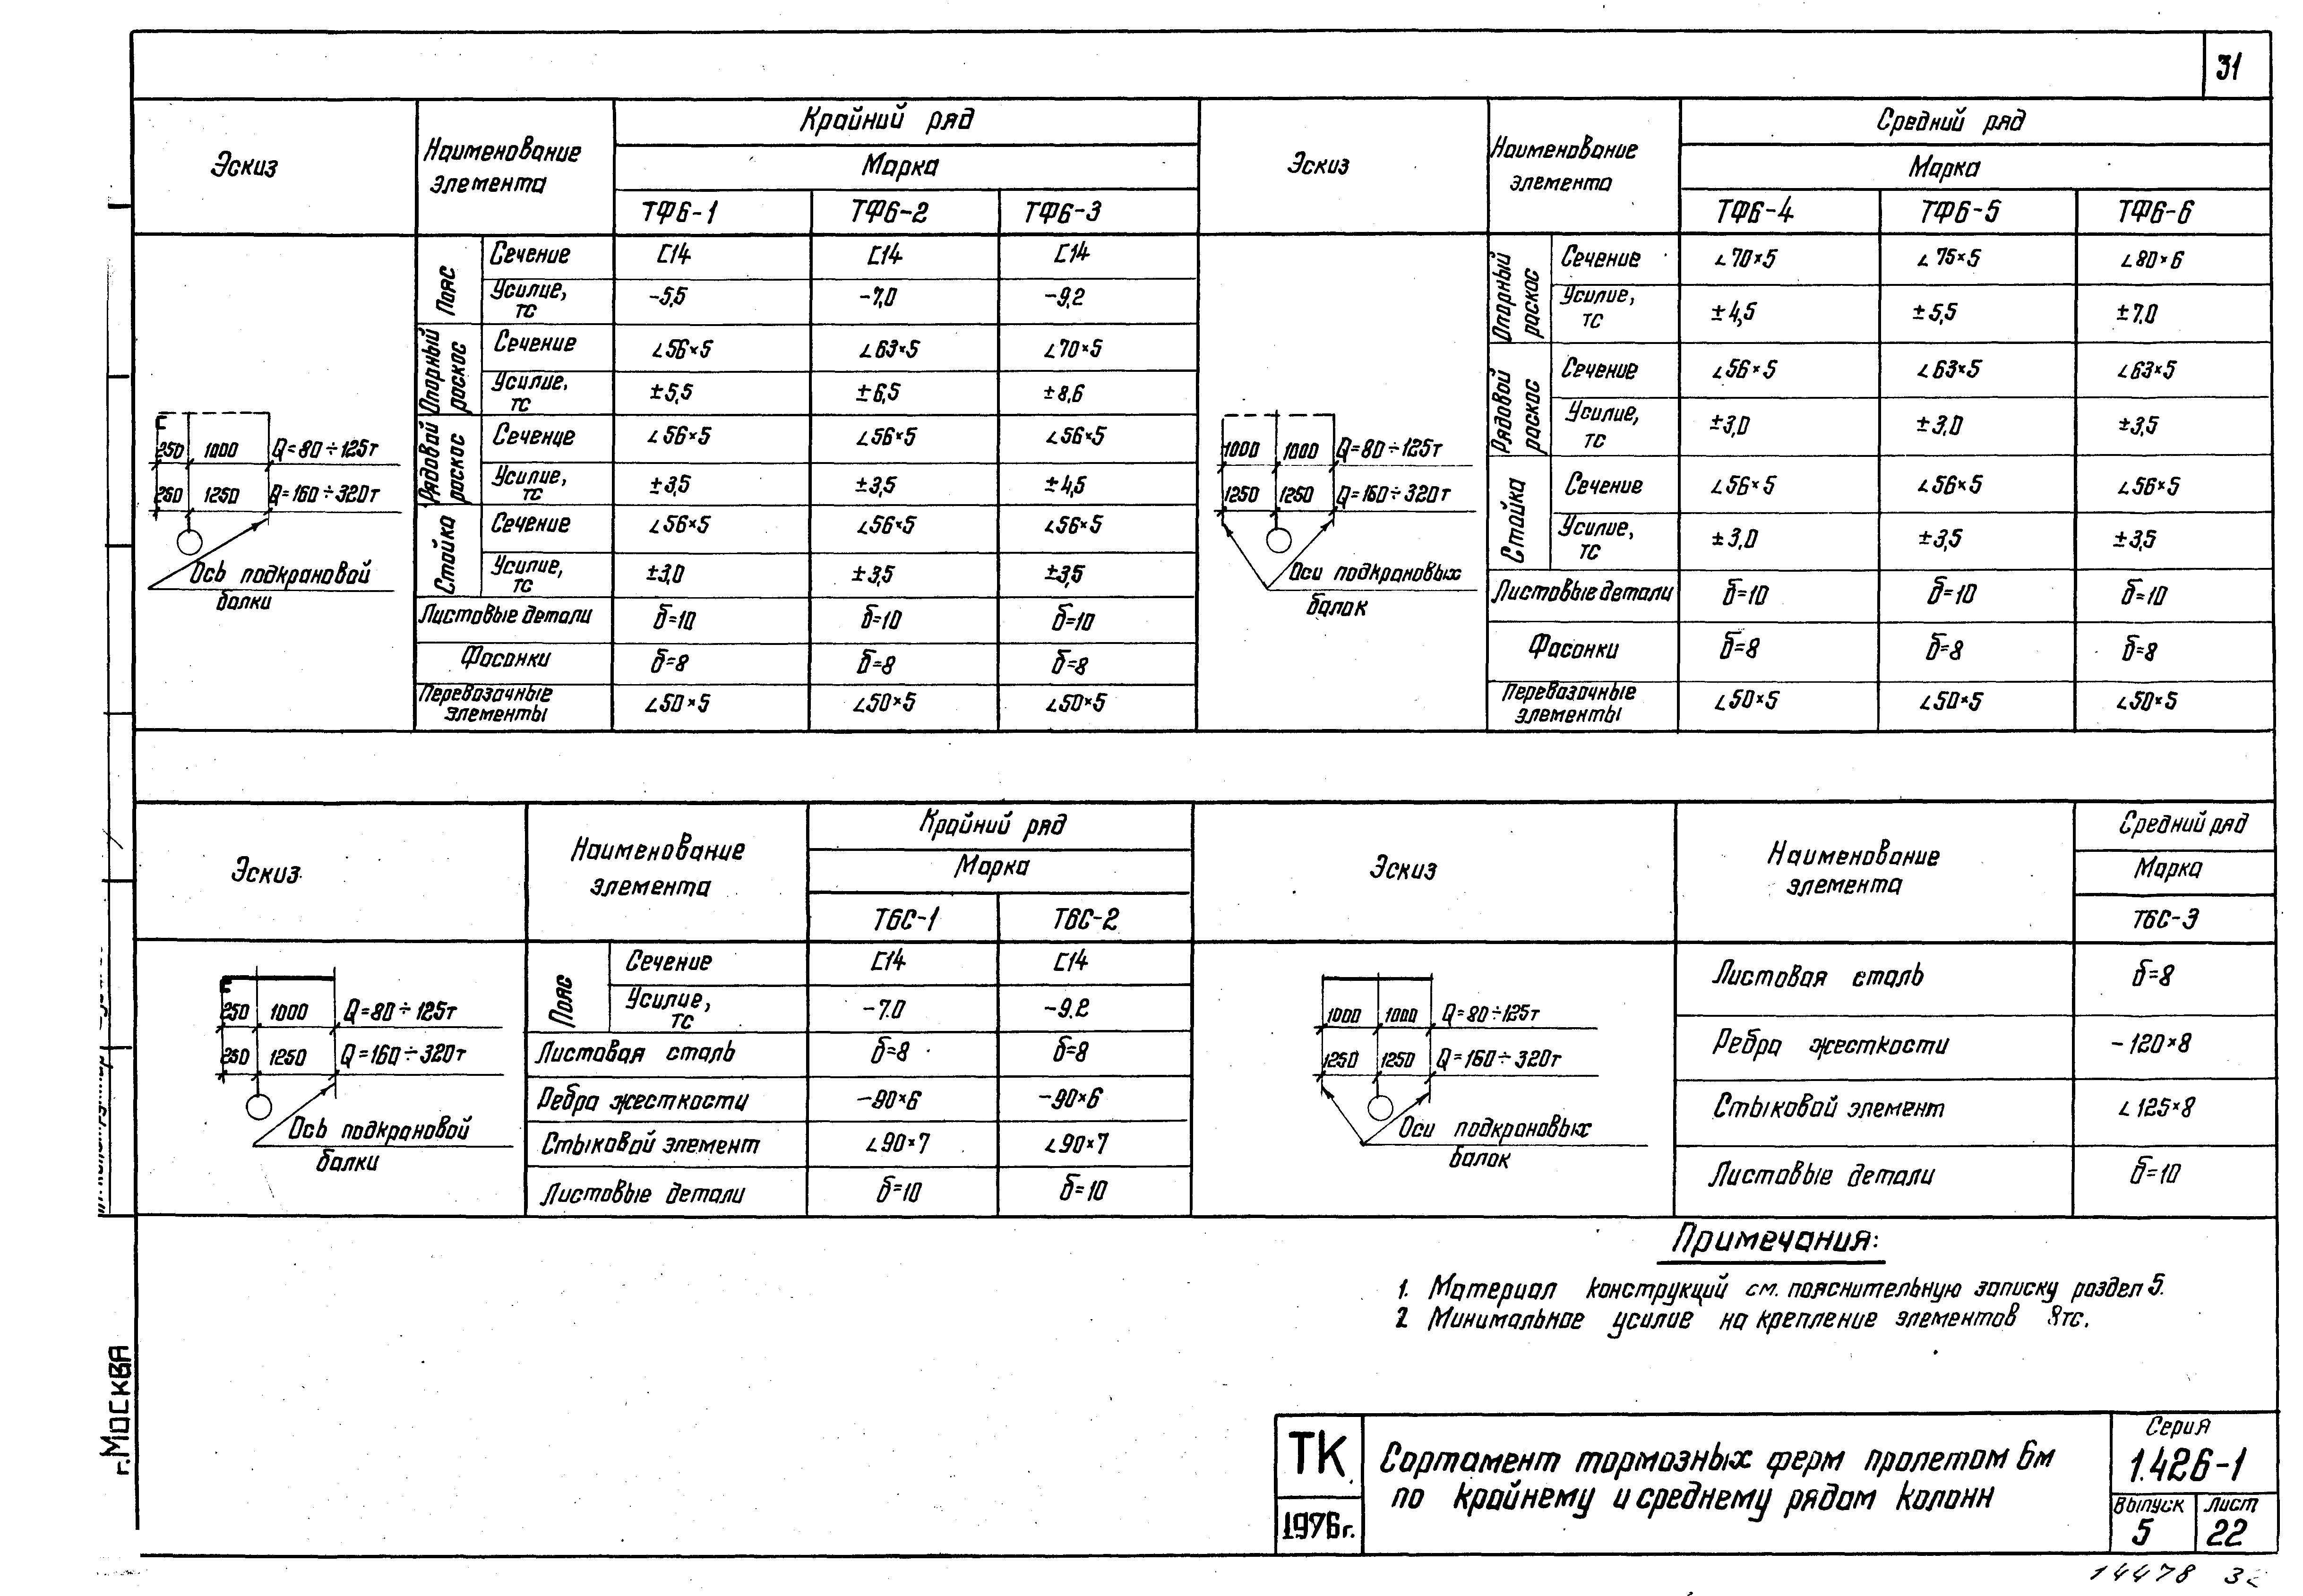 31
Эскиз
Наименование элемента
Крайний ряд
Марка
ТФ6-1 ТФ6-2 ТФ6-3
Пояс
Сечение [14 [14 [14
Усилие, тс -5,5 -7,0 -9,2
Опорный раскос
Сечение ∠56×5 ∠63×5 ∠70×5
Усилие, тс ±5,5 ±6,5 ±8,6
Рядовой раскос
Сечение ∠56×5 ∠56×5 ∠56×5
Усилие, тс ±3,5 ±3,5 ±4,5
Стойка
Сечение ∠56×5 ∠56×5 ∠56×5
Усилие, тс ±3,0 ±3,5 ±3,5
Листовые детали δ=10 δ=10 δ=10
Фасонки δ=8 δ=8 δ=8
Перевязочные элементы ∠50×5 ∠50×5 ∠50×5
250 1000 Q=80÷125т
250 1250 Q=160÷320т
Ось подкрановой
балки
Эскиз
Наименование элемента
Средний ряд
Марка
ТФ6-4 ТФ6-5 ТФ6-6
Опорный раскос
Сечение ∠70×5 ∠75×5 ∠80×6
Усилие, тс ±4,5 ±5,5 ±7.0
Рядовой раскос
Сечение ∠56×5 ∠63×5 ∠63×5
Усилие, тс ±3,0 ±3,0 ±3,5
Стойка
Сечение ∠56×5 ∠56×5 ∠56×5
Усилие, тс ±3,0 ±3,5 ±3,5
Листовые детали δ=10 δ=10 δ=10
Фасонки δ=8 δ=8 δ=8
Перевязочные элементы ∠50×5 ∠50×5 ∠50×5
1000 1000 Q=80÷125т
1250 1250 Q=160÷320т
Оси подкрановых
балок
Эскиз
Наименование элемента
Крайний ряд
Марка
Т6С-1 Т6С-2
Пояс
Сечение [14 [14
Усилие, тс -7.0 -9.2
Листовая сталь δ=8 δ=8
Ребра жесткости -90×6 -90×6
Стыковой элемент ∠90×7 ∠90×7
Листовые детали δ=10 δ=10
250 1000 Q=80÷125т
250 1250 Q=160÷320т
Ось подкрановой
балки
Эскиз
Наименование элемента
Средний ряд
Марка
Т6С-3
Листовая сталь δ=8
Ребра жесткости -120×8
Стыковой элемент ∠125×8
Листовые детали δ=10
1000 1000 Q=80÷125т
1250 1250 Q=160÷320т
Оси подкрановых
балок
Примечания:
1. Материал конструкций см. пояснительную записку раздел 5.
2 Минимальное усилие на крепление элементов 8тс.
г. Москва
ТК
1976г.
Сортамент тормозных ферм пролетом 6м
по крайнему и среднему рядам колонн
Серия
1.426-1
Выпуск 5
Лист 22
14478